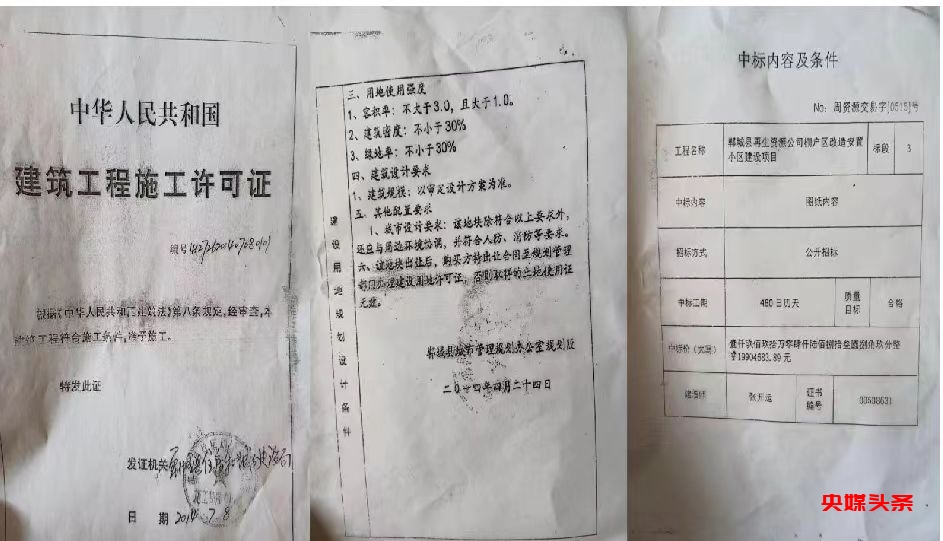 中华人民共和国
建筑工程施工许可证
编号
根据《中华人民共和国建筑法》第八条规定,经审查,本
建筑工程符合施工条件,准予施工。
特发此证
发证机关
日 期 2014.7.8
建设用地规划设计条件
三、用地使用强度
1、容积率:不大于3.0,且大于1.0。
2、建筑密度:不小于30%
3、绿地率:不小于30%
四、建筑设计要求
1、建筑规模:以审定设计方案为准。
五、其他配置要求
1、城市设计要求:该地块除符合以上要求外,
还且与周边环境协调,并符合人防、消防等要求。
六、该地块出让后,购买方持出让合同至规划管理
部门办理建设用地许可证,否则取得的土地使用证
无效。
郸城县城市管理规划办公室规划
二〇一四年四月二十四日
中标内容及条件
No: 周资源交易字[0515]号
工程名称 郸城县再生资源公司棚户区改造安置 标段 3
小区建设项目
中标内容 图纸内容
招标方式 公开招标
中标工期 480日历天 质量目标 合格
中标价(大写) 壹仟玖佰玖拾万零肆仟陆佰捌拾叁圆捌角玖分整
19904683.89元
建造师 张开运 证书编号 00508631
央媒头条